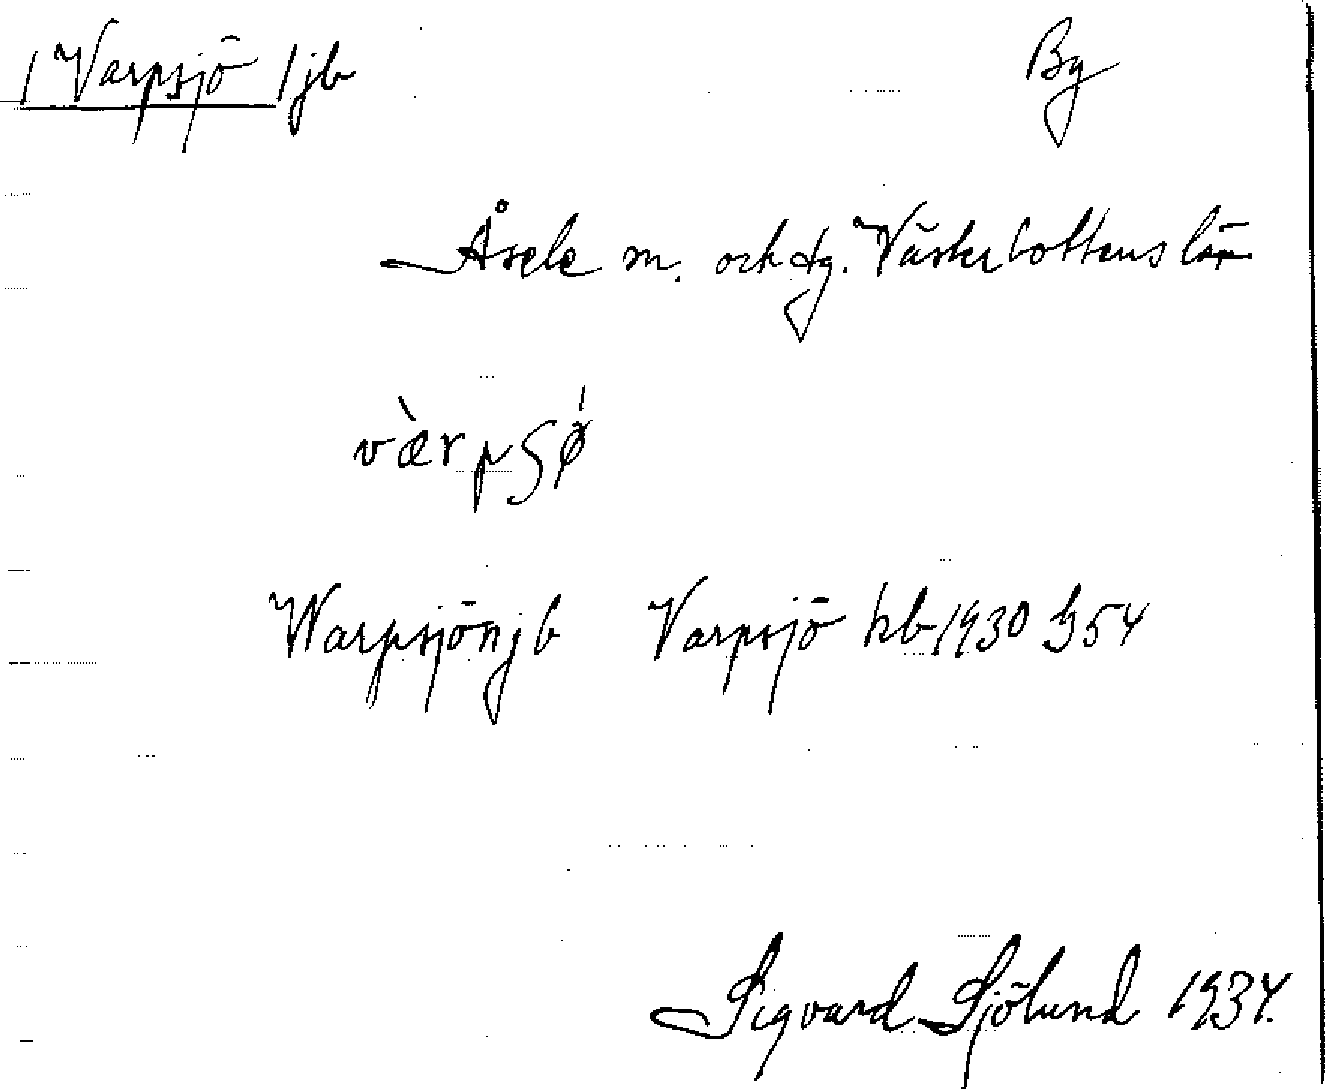 /Varpsjö/jb By
Åsele sn. och tg. Västerbottens län
vàrpʃø̍
Warpsjön jb Varpsjö hb 1930 G54
Sigvard Sjölund 1934.